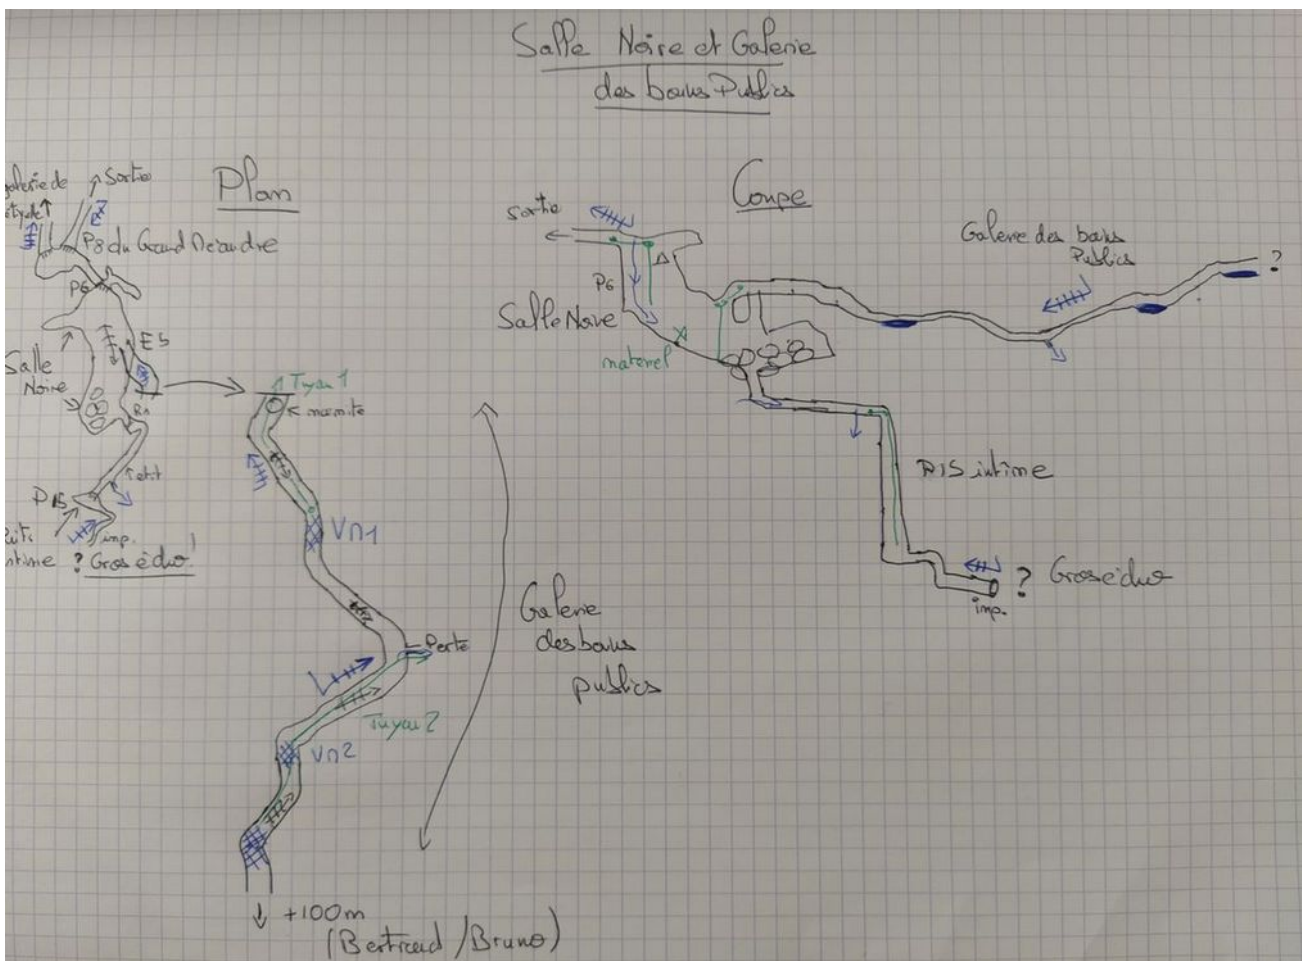 Salle Noire et Galerie
des bains Publics
Plan
Coupe
galerie de
Sortie
P8 du Grand Méandre
P6
E5
Salle
Noire
P15
imp.
? Gros écho !
Tuyau 1
marmite
VM1
Perte
Tuyau 2
VM2
Galerie
des bains
publics
+100m
(Bertrand / Bruno)
sortie
P6
Salle Noire
matériel
Galerie des bains
Publics
?
P15 intime
? Gros écho
imp.